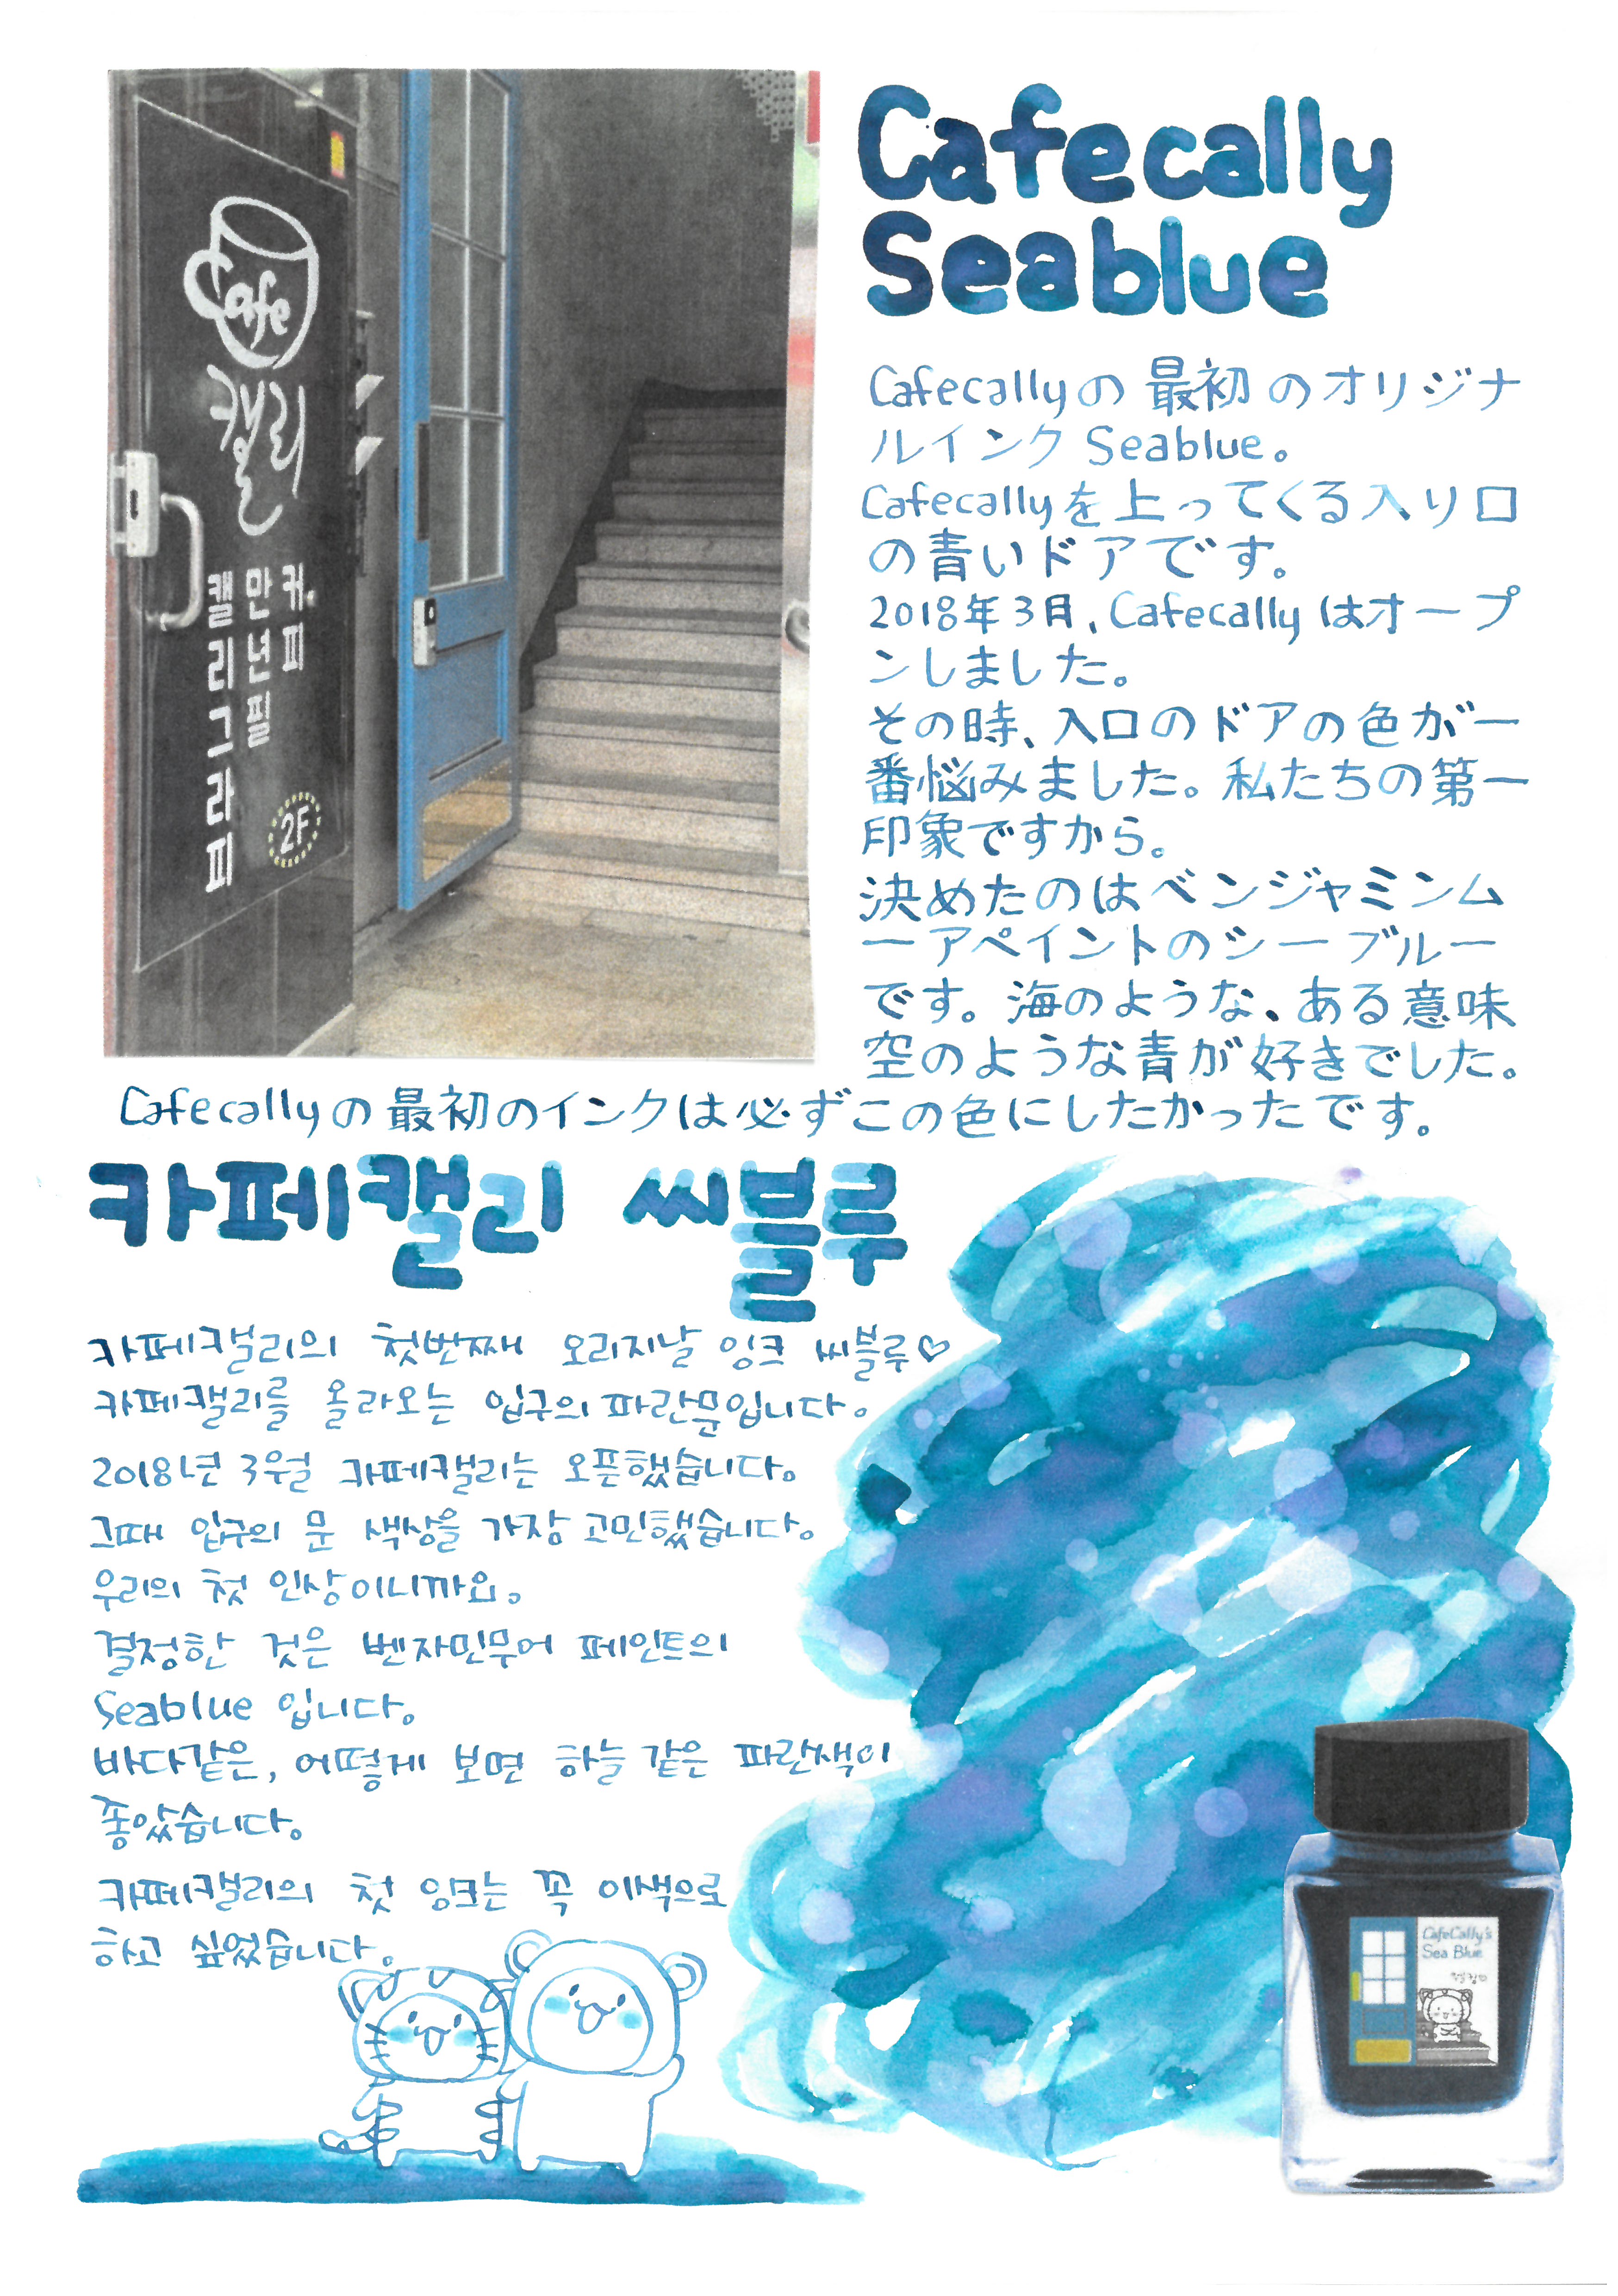 Cafe
캘리
커피
만년필
캘리그라피
2F
Cafecally
Seablue
Cafecallyの最初のオリジナ
ルインク Seablue。
Cafecallyを上ってくる入り口
の青いドアです。
2018年3月、Cafecallyはオープ
ンしました。
その時、入口のドアの色が一
番悩みました。私たちの第一
印象ですから。
決めたのはベンジャミンム
ーアペイントのシーブルー
です。海のような、ある意味
空のような青が好きでした。
Cafecallyの最初のインクは必ずこの色にしたかったです。
카페캘리 씨블루
카페캘리의 첫번째 오리지날 잉크 씨블루♡
카페캘리를 올라오는 입구의 파란문입니다.
2018년 3월 카페캘리는 오픈했습니다.
그때 입구의 문 색상을 가장 고민했습니다.
우리의 첫 인상이니까요.
결정한 것은 벤자민무어 페인트의
Seablue 입니다.
바다같은, 어떻게 보면 하늘같은 파란색이
좋았습니다.
카페캘리의 첫 잉크는 꼭 이색으로
하고 싶었습니다.
CafeCally's
Sea Blue